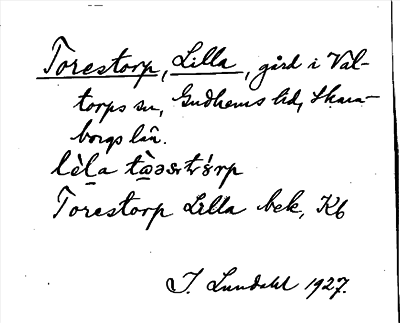 Torestorp, Lilla, gård i Val-
torps sn, Gudhems hd, Skara-
borgs län.
lèla
Torestorp Lilla bek, Kb
I. Lundahl 1927.